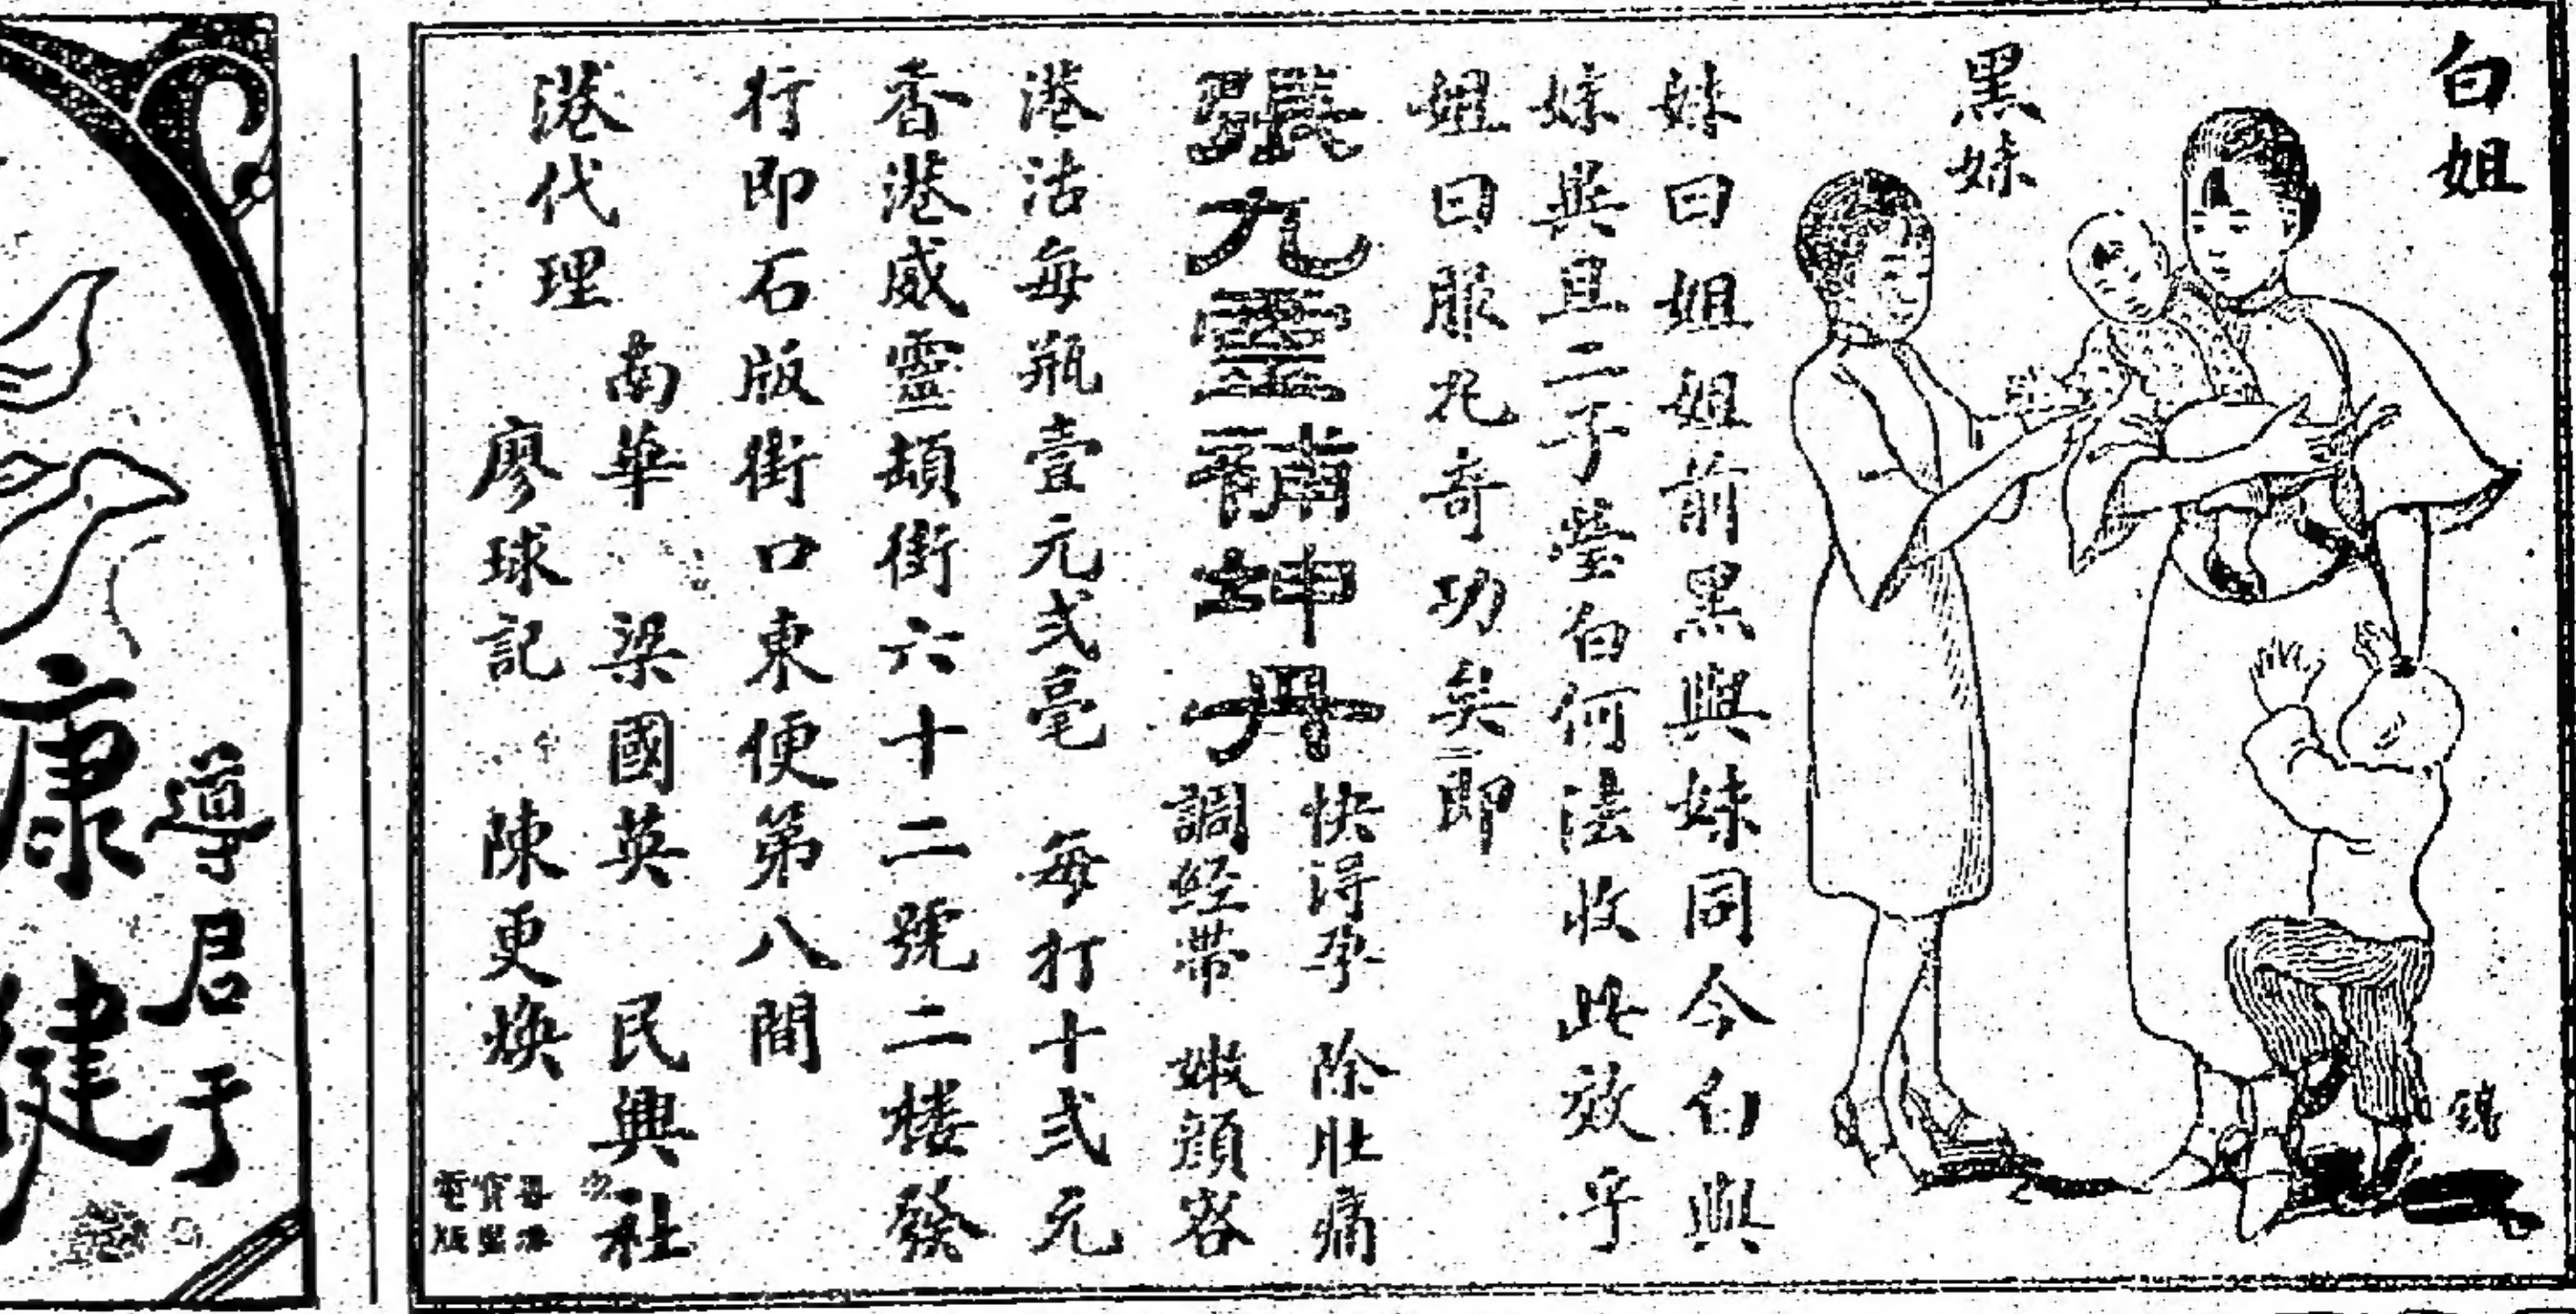 白姐
黑妹
妹曰姐姐前黑與妹同今白與
妹異且二子瑩白何法收此效乎
姐曰服丸奇功矣即
張九靈補坤丹
快得孕 除肚痛
調經帶 嫩顏容
港沽每瓶壹元弍毫 每打十弍元
香港威靈頓街六十二號二樓發
行即石版街口東便第八間
港代理
南華 梁國英 民興社
廖球記 陳更煥
導君于
康健